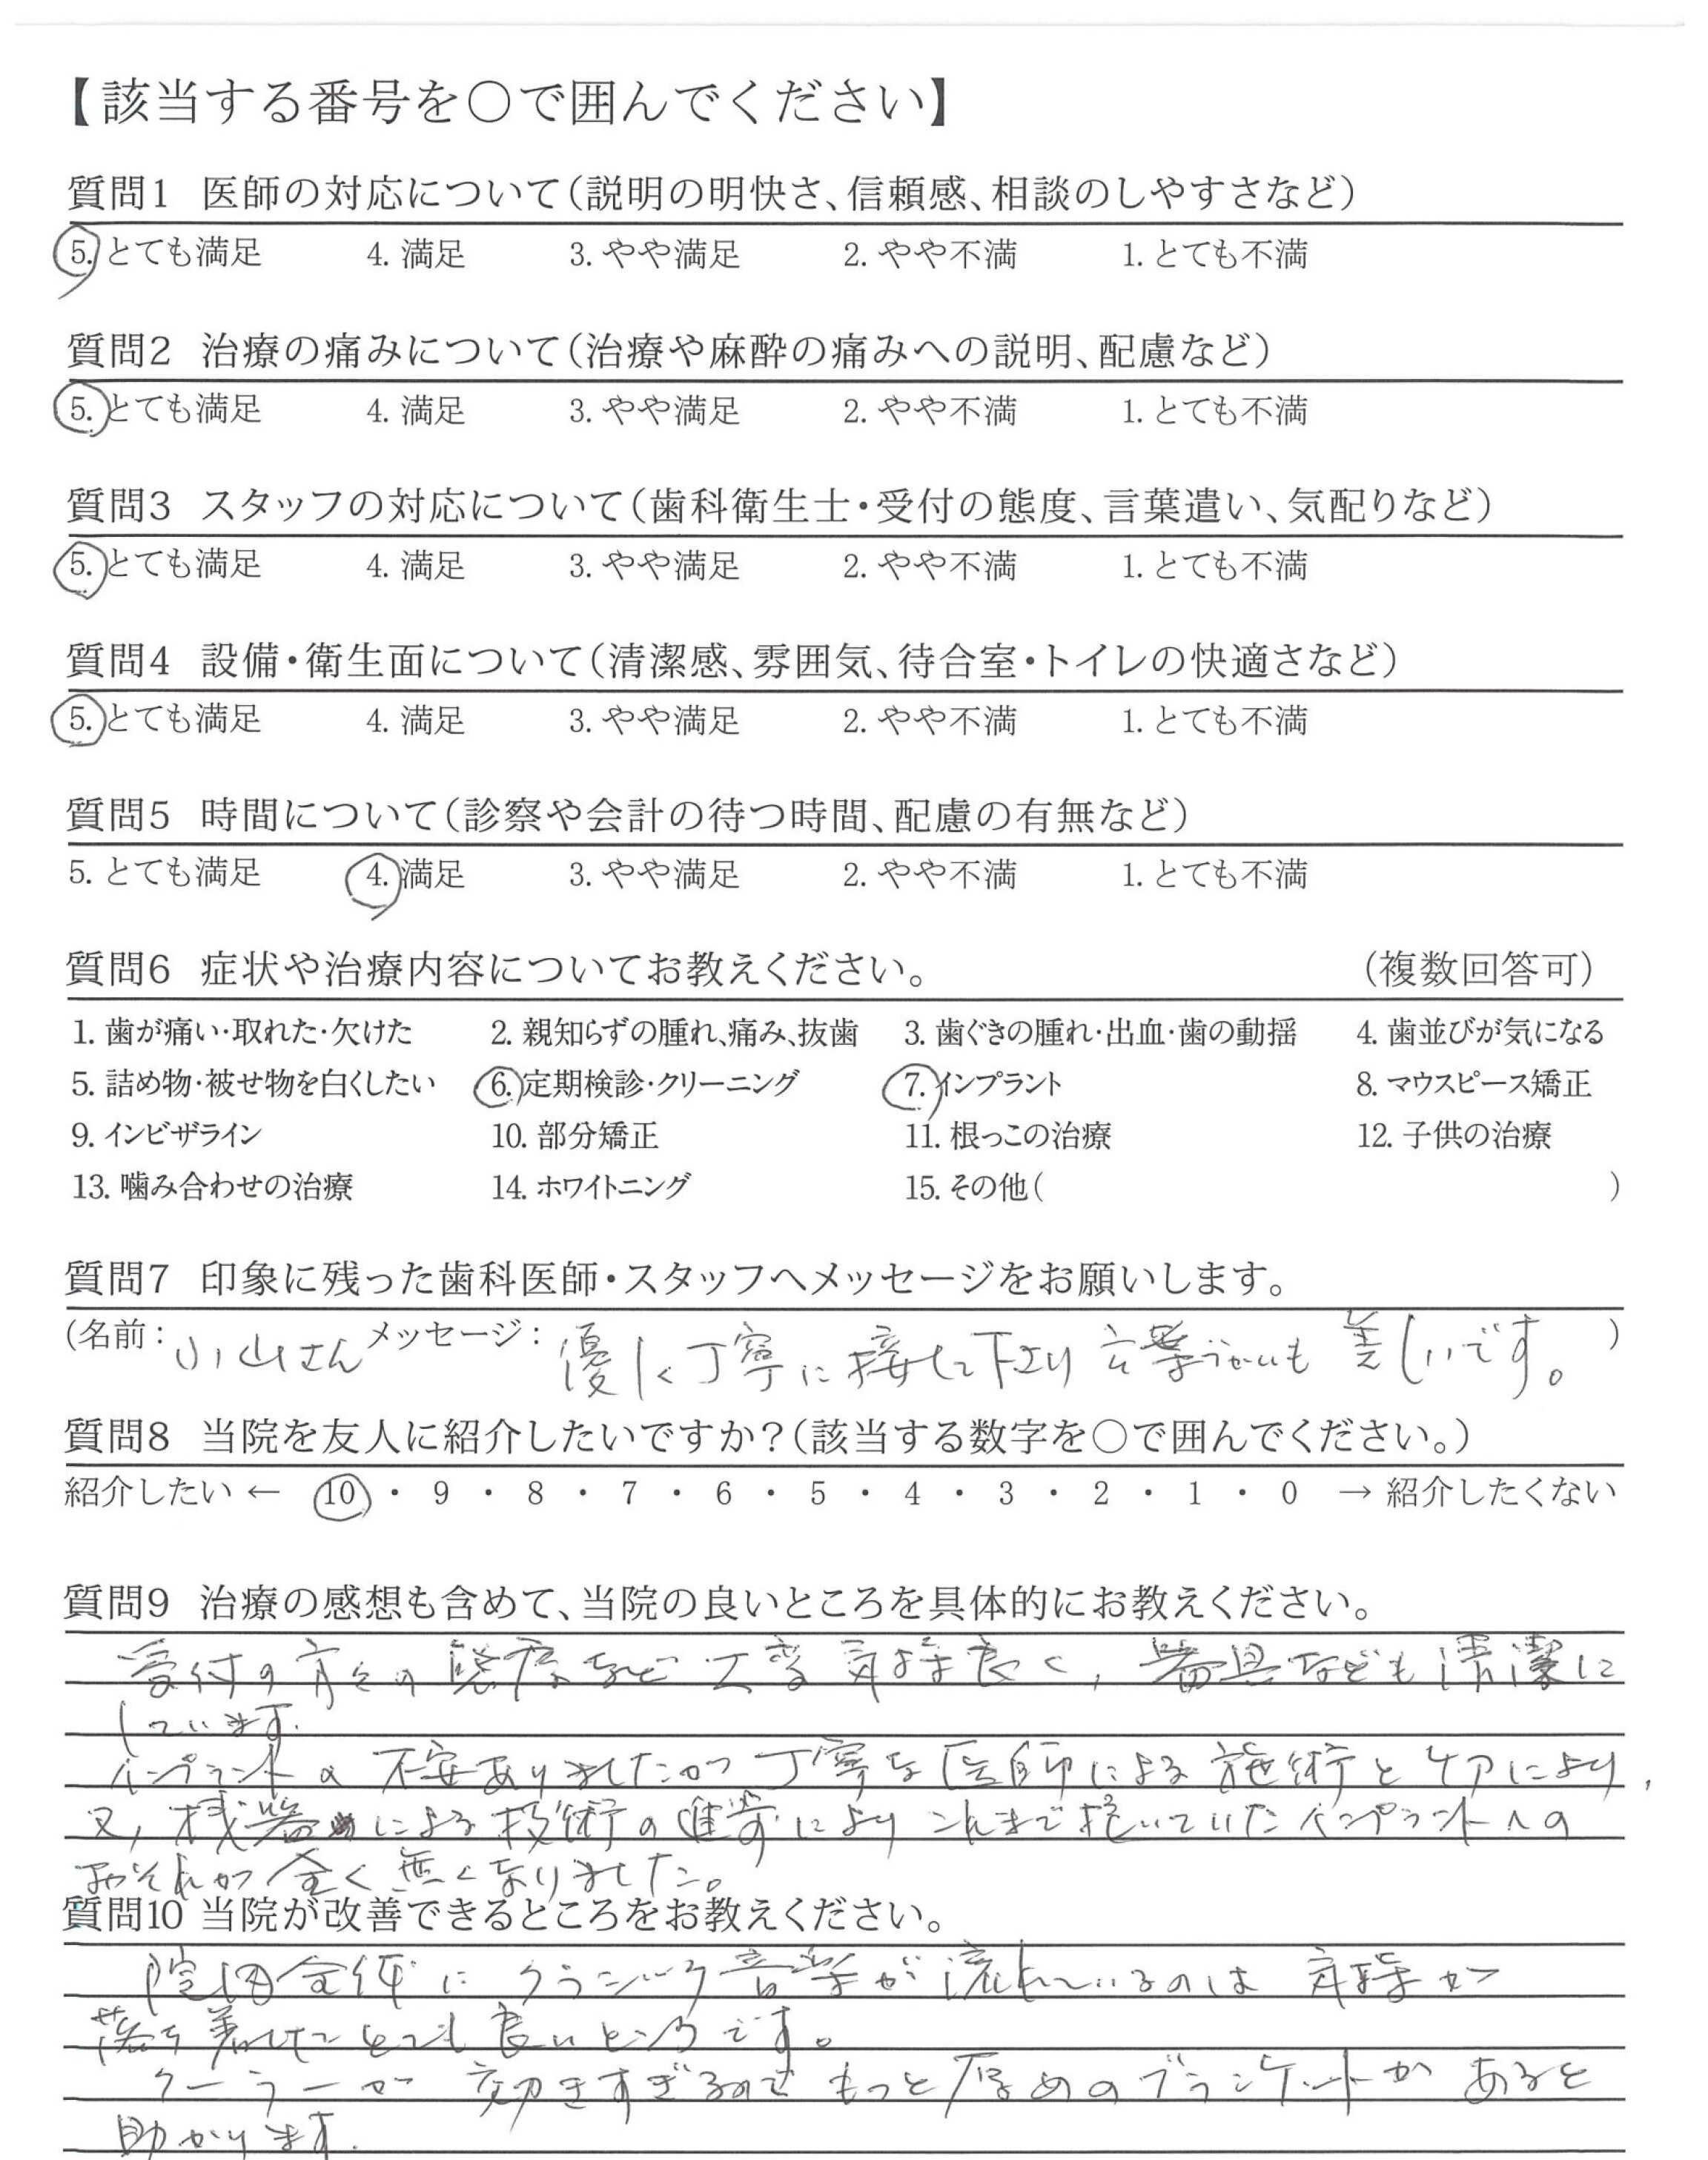 【該当する番号を○で囲んでください】
質問1 医師の対応について(説明の明快さ、信頼感、相談のしやすさなど)
5. とても満足 4. 満足 3. やや満足 2. やや不満 1. とても不満
質問2 治療の痛みについて(治療や麻酔の痛みへの説明、配慮など)
5. とても満足 4. 満足 3. やや満足 2. やや不満 1. とても不満
質問3 スタッフの対応について(歯科衛生士・受付の態度、言葉遣い、気配りなど)
5. とても満足 4. 満足 3. やや満足 2. やや不満 1. とても不満
質問4 設備・衛生面について(清潔感、雰囲気、待合室・トイレの快適さなど)
5. とても満足 4. 満足 3. やや満足 2. やや不満 1. とても不満
質問5 時間について(診察や会計の待つ時間、配慮の有無など)
5. とても満足 4. 満足 3. やや満足 2. やや不満 1. とても不満
質問6 症状や治療内容についてお教えください。 (複数回答可)
1. 歯が痛い・取れた・欠けた 2. 親知らずの腫れ、痛み、抜歯 3. 歯ぐきの腫れ・出血・歯の動揺 4. 歯並びが気になる
5. 詰め物・被せ物を白くしたい 6. 定期検診・クリーニング 7. インプラント 8. マウスピース矯正
9. インビザライン 10. 部分矯正 11. 根っこの治療 12. 子供の治療
13. 噛み合わせの治療 14. ホワイトニング 15. その他( )
質問7 印象に残った歯科医師・スタッフへメッセージをお願いします。
(名前: 小山さん メッセージ: 優しく丁寧に接して下さり 言葉づかいも 美しいです。 )
質問8 当院を友人に紹介したいですか?(該当する数字を○で囲んでください。)
紹介したい ← 10 ・ 9 ・ 8 ・ 7 ・ 6 ・ 5 ・ 4 ・ 3 ・ 2 ・ 1 ・ 0 → 紹介したくない
質問9 治療の感想も含めて、当院の良いところを具体的にお教えください。
受付の方々の 態度など 大変気持良く, 器具なども清潔に
しています.
インプラントの 不安ありましたが 丁寧な医師による 施術とケアにより,
又, 機器による技術の進歩により これまで抱いていたインプラントへの
おそれが 全く無くなりました。
質問10 当院が改善できるところをお教えください。
院内全体に クラシック音楽が 流れているのは 気持が
落ち着けて とても 良いところです。
クーラーが 効きすぎるので もっと厚めのブランケットが あると
助かります.